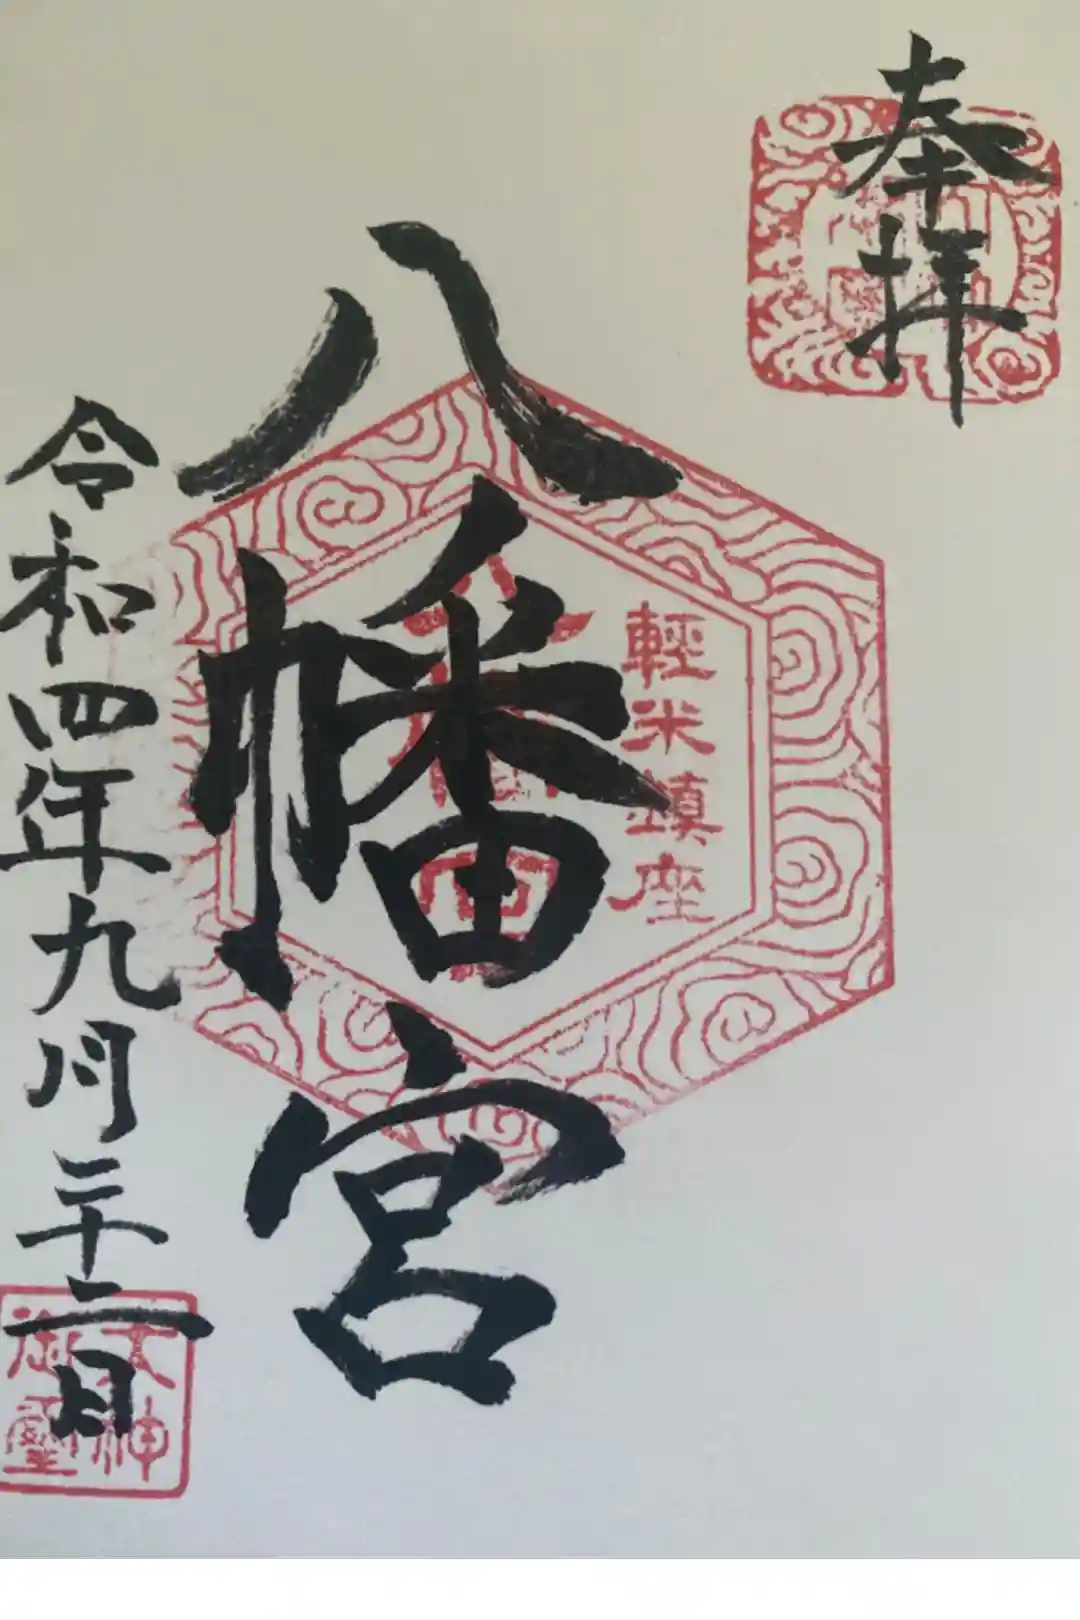 奉拝
輕米鎮座
八幡宮
令和四年九月二十二日